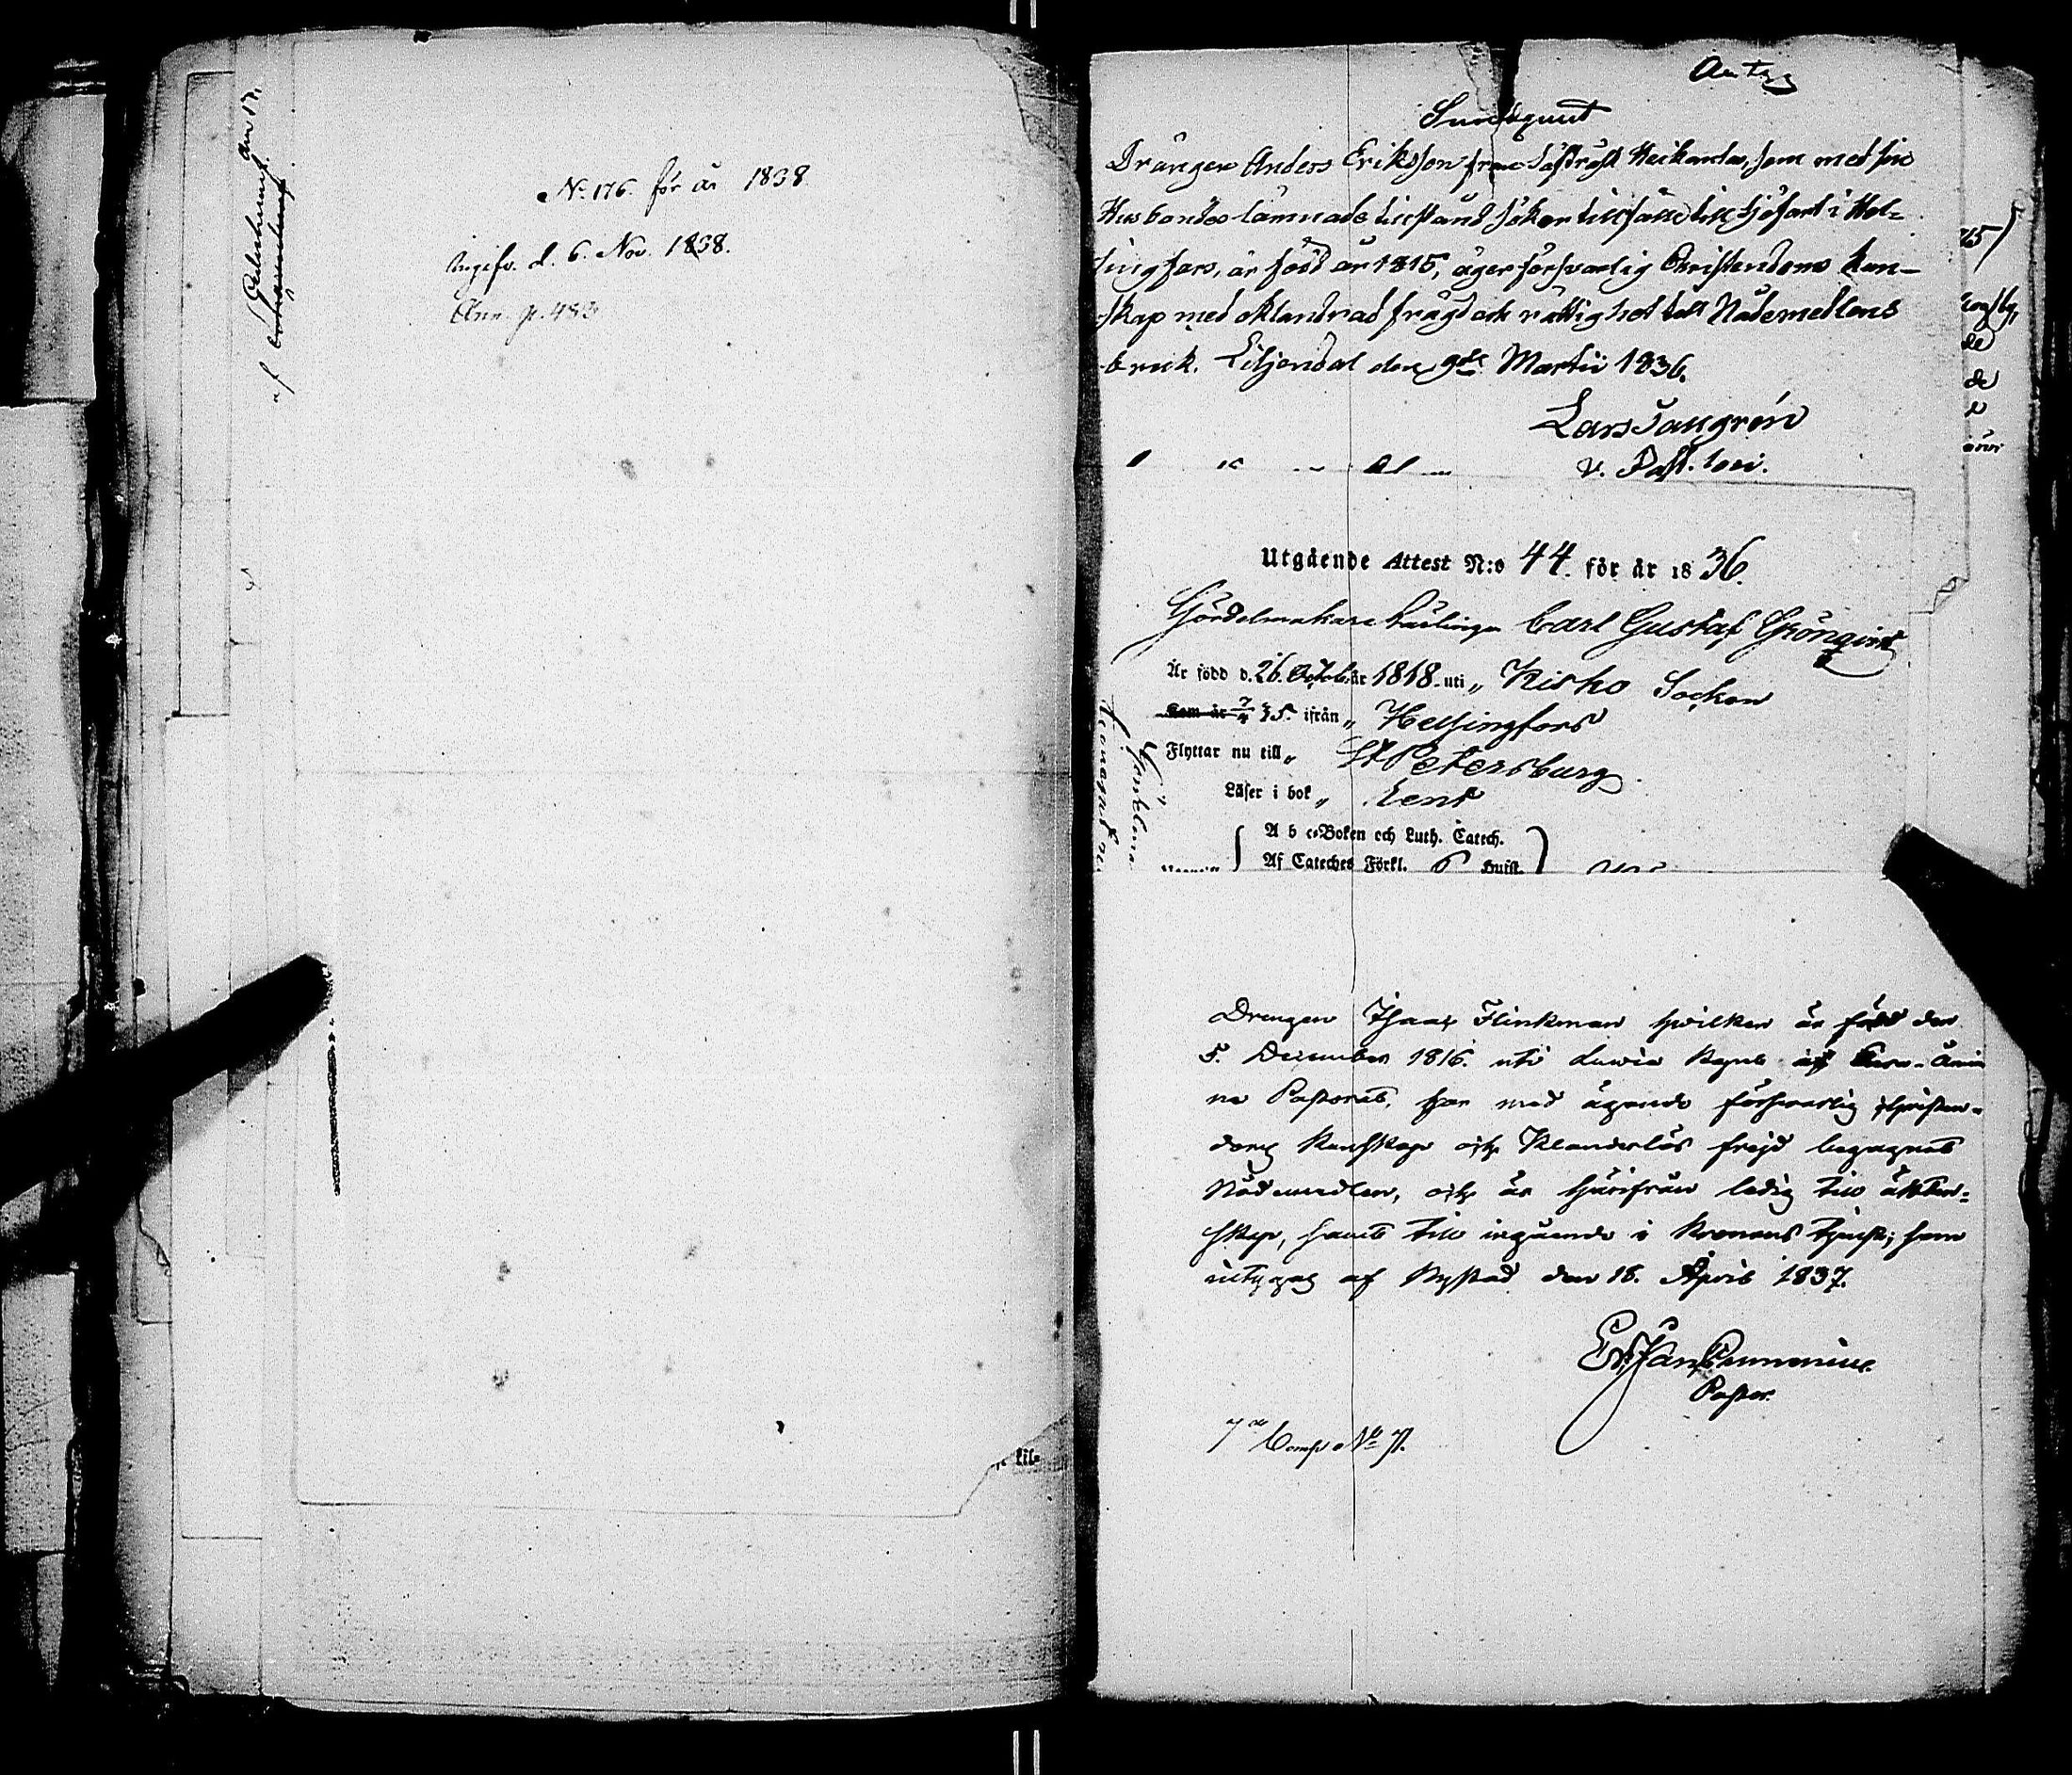 No 176. för år 1838
Ingifv. d. 6. Nov. 1838.
Ann. p. 483
Sundqvist
Drängen Anders Eriksson från Heikandas, som med sin
Husbondes lämnade tillstånd söker tillfälle till sjöfart i Hel-
singfors, är född år 1815, äger försvarlig Christendoms kun-
skap med oklandrad frägd och rättighet till Nådemedlens
bruk. Liljendal den 9de Martii 1836.
Lars Tallgrén
v. Past. loci.
Utgående Attest N:o 44. för år 1836.
Gördelmakare Lärlingen Carl Gustaf Grönqvist
Är född d. 26. Octob. år 1818 uti „ Kisko Socken
Kom år 7/4 35. ifrån „ Helsingfors
Flyttar nu till „ St Petersburg
Läser i bok „ Rent
A b c-Boken och Luth. Catech.
Af Cateches Förkl. 6 Hufst.
Drengen Isaac Flinkman hvilken är född den
5. December 1816. uti Luvia Capell af
ne Pastorat, har med ägande försvarlig Christen-
doms Kunskap och Klanderlös frejd begagnat
Nådemedlen, och är härifrån ledig till äkten-
skap, samt till ingående i Kronans tjenst; som
intygas af Nystad den 18. April 1837.
Pastor.
7de Comp. No 71.